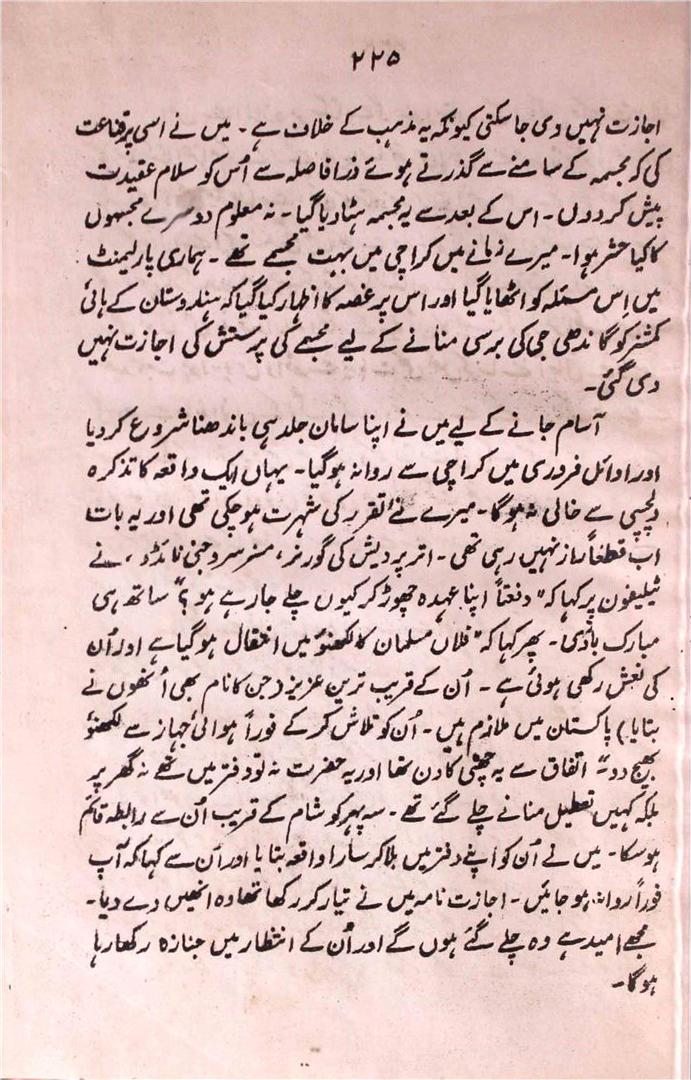 ۲۲۵
اجازت نہیں دی جا سکتی کیونکہ یہ مذہب کے خلاف ہے۔ میں نے اسی پر قناعت
کی کہ مجسمہ کے سامنے سے گذرتے ہوئے ذرا فاصلہ سے اُس کو سلام عقیدت
پیش کر دوں۔ اس کے بعد سے یہ مجسمہ ہٹا دیا گیا۔ نہ معلوم دوسرے مجسموں
کا کیا حشر ہوا۔ میرے زمانے میں کراچی میں بہت مجسمے تھے۔ ہماری پارلیمنٹ
میں اِس مسئلہ کو اٹھایا گیا اور اس پر غصہ کا اظہار کیا گیا کہ ہندوستان کے ہائی
کمشنر کو گاندھی جی کی برسی منانے کے لیے مجسمے کی پرستش کی اجازت نہیں
دی گئی۔
آسام جانے کے لیے میں نے اپنا سامان جلد ہی باندھنا شروع کر دیا
اور اوائل فروری میں کراچی سے روانہ ہو گیا۔ یہاں ایک واقعہ کا تذکرہ
دلچسپی سے خالی نہ ہوگا۔ میرے نئے تقرر کی شہرت ہو چکی تھی اور یہ بات
اب قطعاً راز نہیں رہی تھی۔ اتر پردیش کی گورنر، مسز سروجنی نائڈو، نے
ٹیلیفون پر کہا کہ "دفعتاً اپنا عہدہ چھوڑ کر کیوں چلے جا رہے ہو؟" ساتھ ہی
مبارک باد دی۔ پھر کہا کہ "فلاں مسلمان کا لکھنؤ میں انتقال ہو گیا ہے اور اُن
کی نعش رکھی ہوئی ہے۔ اُن کے قریب ترین عزیز (جن کا نام بھی اُنھوں نے
بتایا) پاکستان میں ملازم ہیں۔ اُن کو تلاش کر کے فوراً ہوائی جہاز سے لکھنؤ
بھیج دو۔" اتفاق سے یہ چھٹی کا دن تھا اور یہ حضرت نہ تو دفتر میں تھے نہ گھر پر
بلکہ کہیں تعطیل منانے چلے گئے تھے۔ سہ پہر کو شام کے قریب اُن سے رابطہ قائم
ہو سکا۔ میں نے اُن کو اپنے دفتر میں بلا کر سارا واقعہ بتایا اور اُن سے کہا کہ آپ
فوراً روانہ ہو جائیں۔ اجازت نامہ میں نے تیار کر رکھا تھا وہ انھیں دے دیا۔
مجھے امید ہے وہ چلے گئے ہوں گے اور اُن کے انتظار میں جنازہ رکھا رہا
ہوگا۔